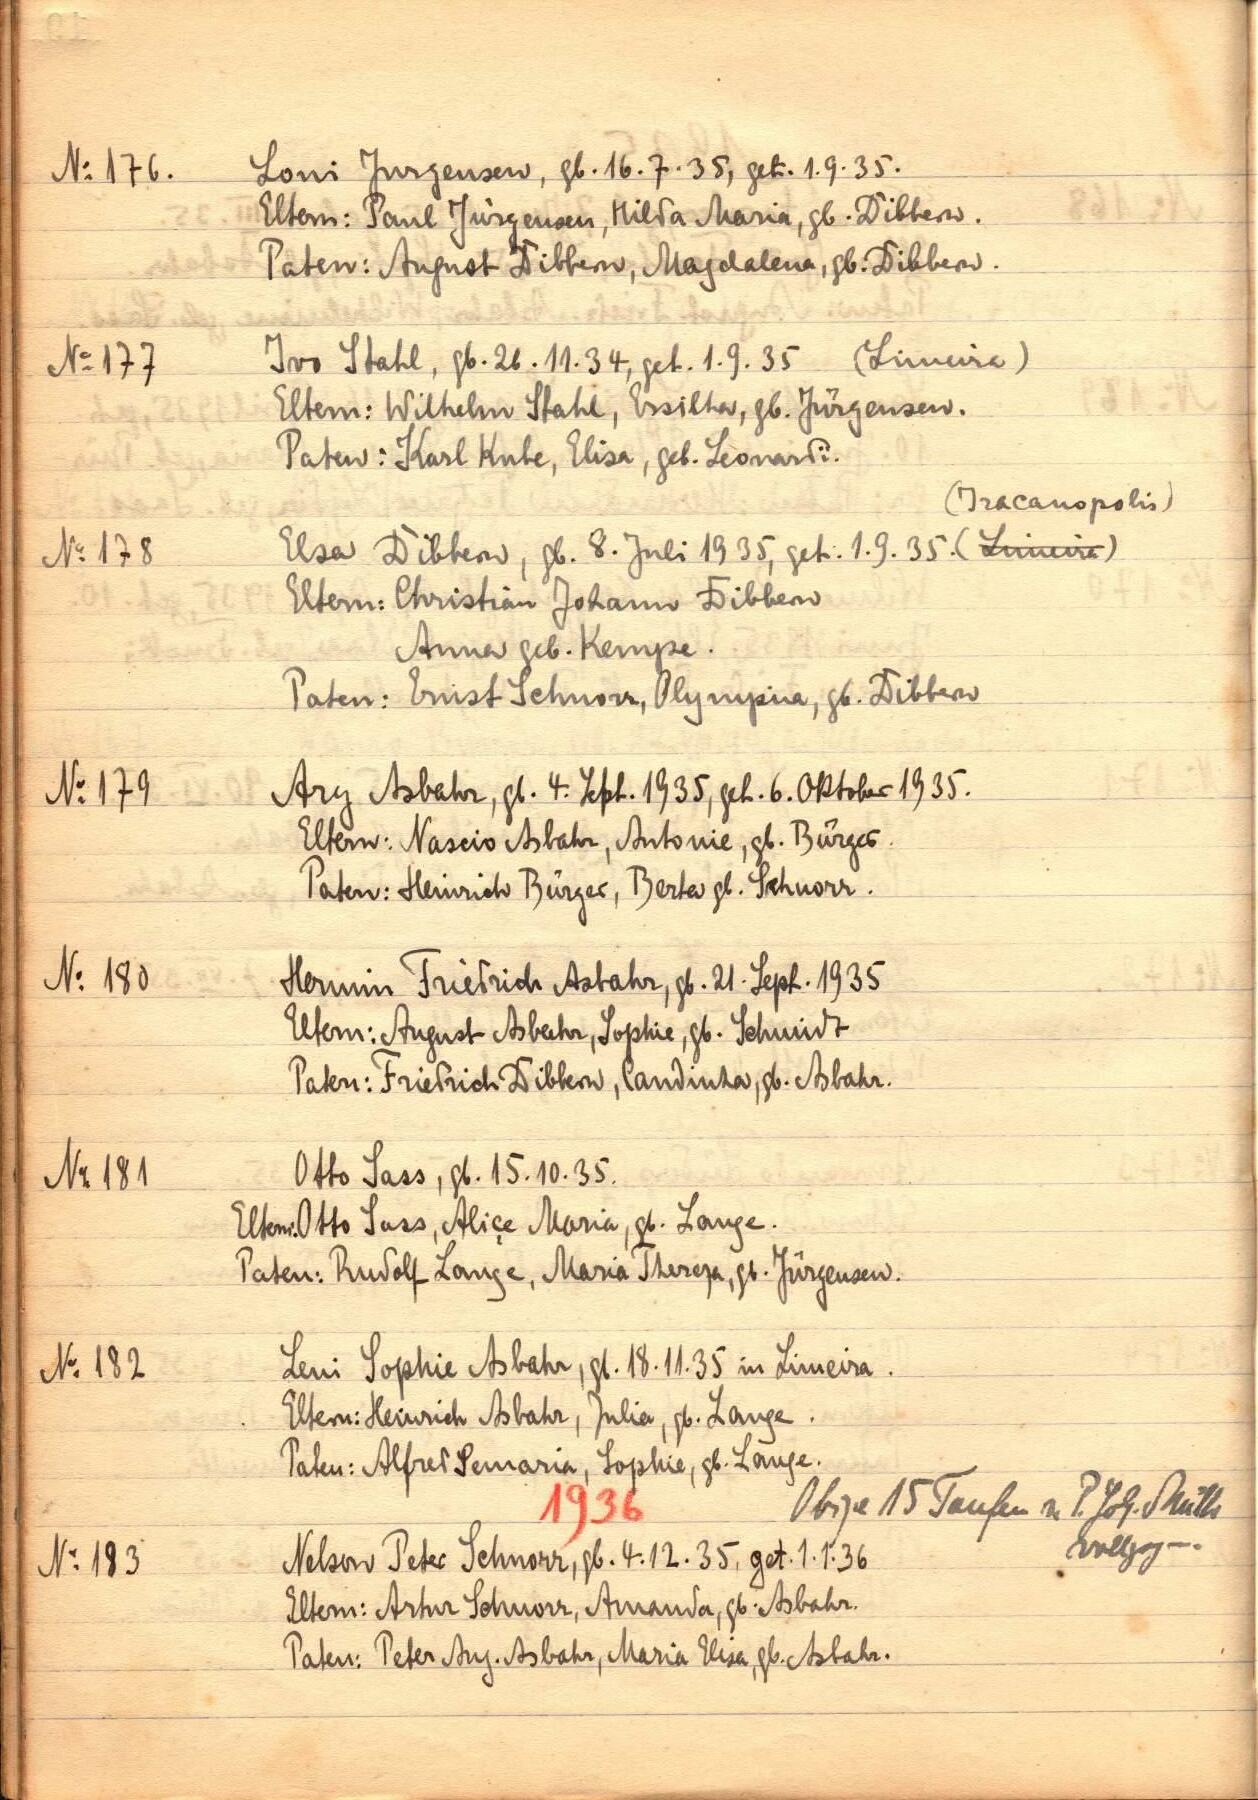 No. 176. Loni Jurgensen, gb. 16.7.35, get. 1.9.35.
Eltern: Paul Jürgensen, Hilda Maria, gb. Dibbern.
Paten: August Dibbern, Magdalena, gb. Dibbern.
No. 177 Ivo Stahl, gb. 26.11.34, get. 1.9.35 (Limeira)
Eltern: Wilhelm Stahl, Ersilha, gb. Jürgensen.
Paten: Karl Kube, Elisa, geb. Leonardi.
(Iracanopolis)
Nr. 178 Elsa Dibbern, gb. 8. Juli 1935, get. 1.9.35. (Limeira)
Eltern: Christian Johann Dibbern
Anna geb. Kempe.
Paten: Ernst Schnorr, Olympia, gb. Dibbern
No. 179 Ary Asbahr, gb. 4. Sept. 1935, get. 6. Oktober 1935.
Eltern: Nascio Asbahr, Antonie, gb. Bürger.
Paten: Heinrich Bürger, Berta gb. Schnorr.
No. 180 Hermin Friedrich Asbahr, gb. 21. Sept. 1935
Eltern: August Asbahr, Sophie, gb. Schmidt
Paten: Friedrich Dibbern, Candinha, gb. Asbahr.
Nr. 181 Otto Sass, gb. 15.10.35.
Eltern: Otto Sass, Alice Maria, gb. Lange.
Paten: Rudolf Lange, Maria Thereza, gb. Jürgensen.
No. 182 Leni Sophie Asbahr, gb. 18.11.35 in Limeira.
Eltern: Heinrich Asbahr, Julia, gb. Lange.
Paten: Alfred Semaria, Sophie, gb. Lange.
1936 Obige 15 Taufen v. P. Joh.
vollzog
Nr. 183 Nelson Peter Schnorr, gb. 4.12.35, get. 1.1.36
Eltern: Artur Schnorr, Amanda, gb. Asbahr.
Paten: Peter Aug. Asbahr, Maria Elisa, gb. Asbahr.